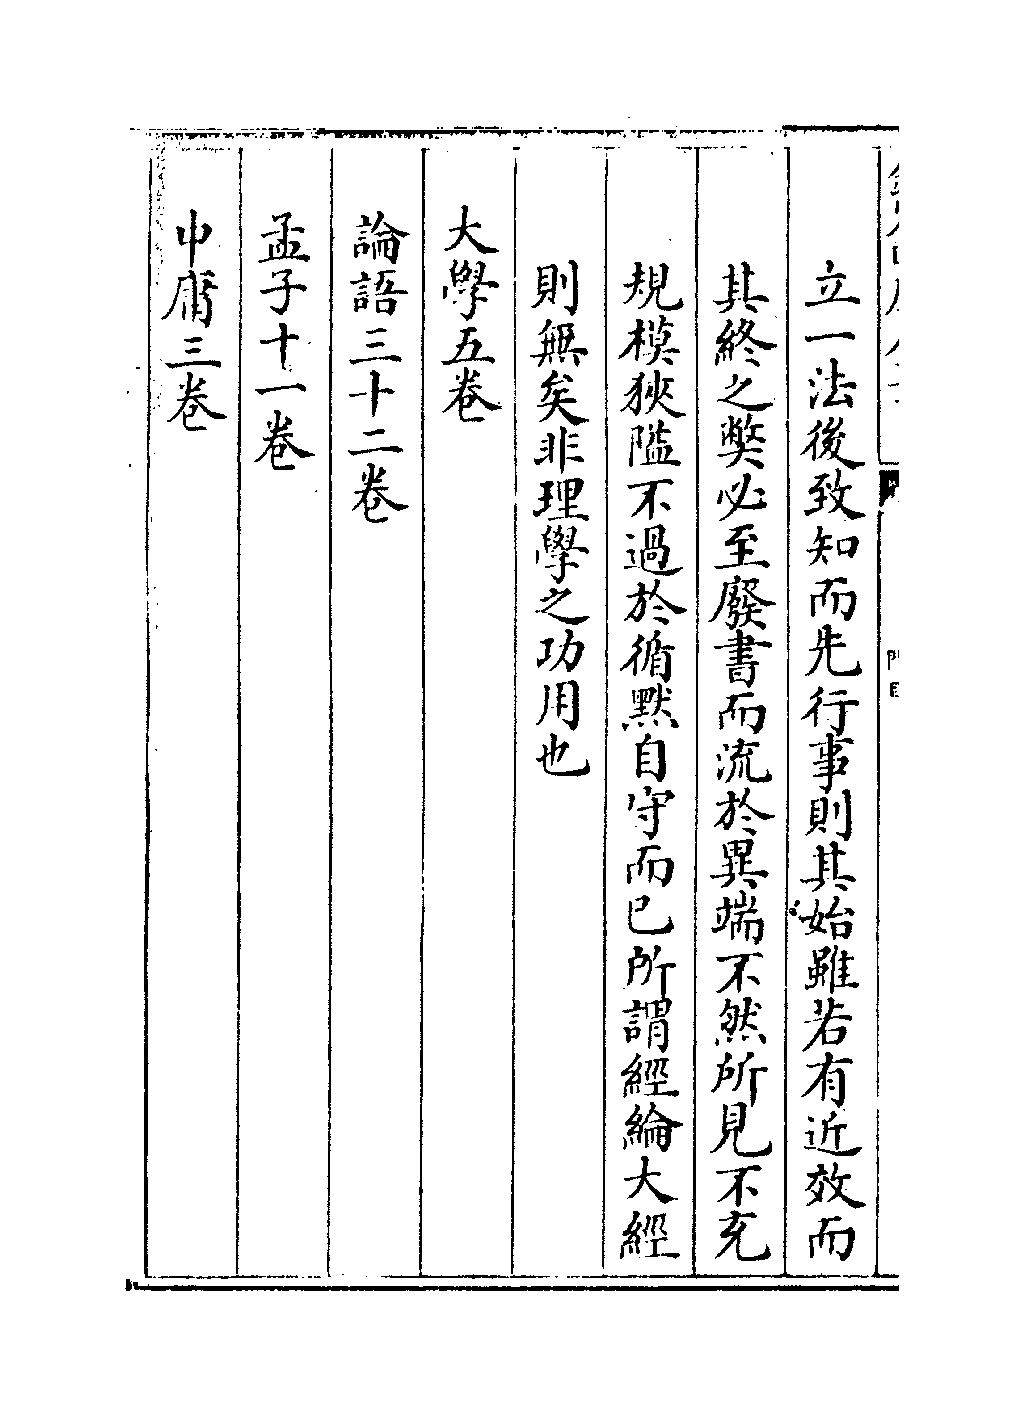 立一法後致知而先行事則其始雖若有近效而
其終之弊必至廢書而流於異端不然所見不充
規模狹隘不過於循默自守而已所謂經綸大經
則無矣非理學之功用也
大學五卷
論語三十二卷
孟子十一卷
中庸三卷